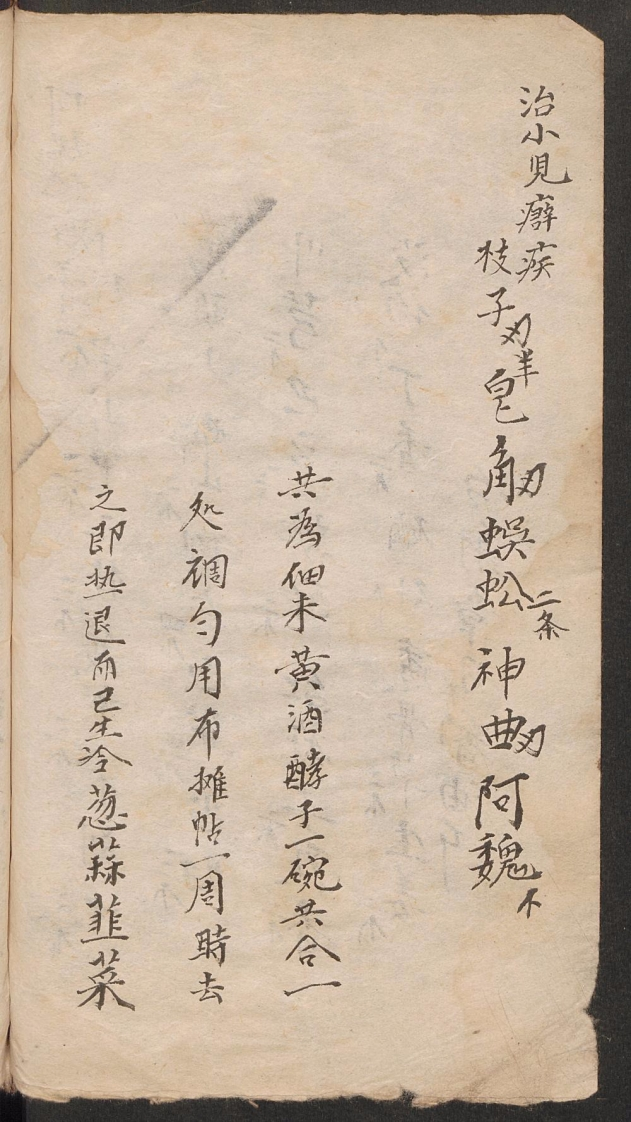 治小児癖疾
枝子刄半皂角刄蜈蚣二条神曲刄阿魏不
共為細末黄酒酵子一碗共合一
处調匀用布摊帖一周時去
之即热退而已生冷葱蒜韮菜